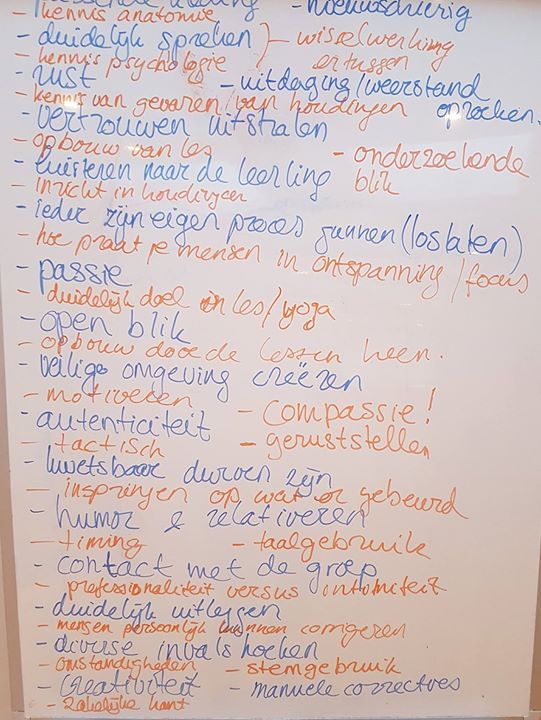 - nieuwsgierig
- kennis anatomie
- duidelijk spreken } - wisselwerking
- kennis psychologie ertussen
- rust - uitdaging/weerstand
- kennis van gevaren/van houdingen opzoeken.
- vertrouwen uitstralen
- opbouw van les - onderzoekende
- luisteren naar de leerling blik
- inzicht in houdingen
- ieder zijn eigen proces gunnen (loslaten)
- hoe praat je mensen in ontspanning / focus
- passie
- duidelijk doel in les/yoga
- open blik
- opbouw door de lessen heen.
- veilige omgeving creëren
- motiveren - compassie!
- autenticiteit
- tactisch - geruststellen
- kwetsbaar durven zijn
- inspringen op wat er gebeurd
- humor & relativeren
- timing - taalgebruik
- contact met de groep
- professionaliteit versus intimiteit
- duidelijk uitleggen
- mensen persoonlijk kunnen corrigeren
- diverse invalshoeken
- omstandigheden - stemgebruik
- creativiteit - manuele correcties
- zakelijke kant